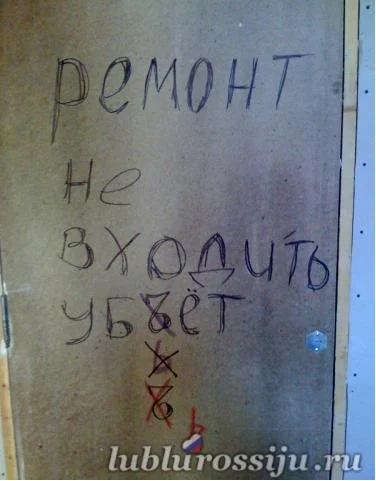 ремонт
не
входить
убъёт
ь
ъ
ь
lublurossiju.ru